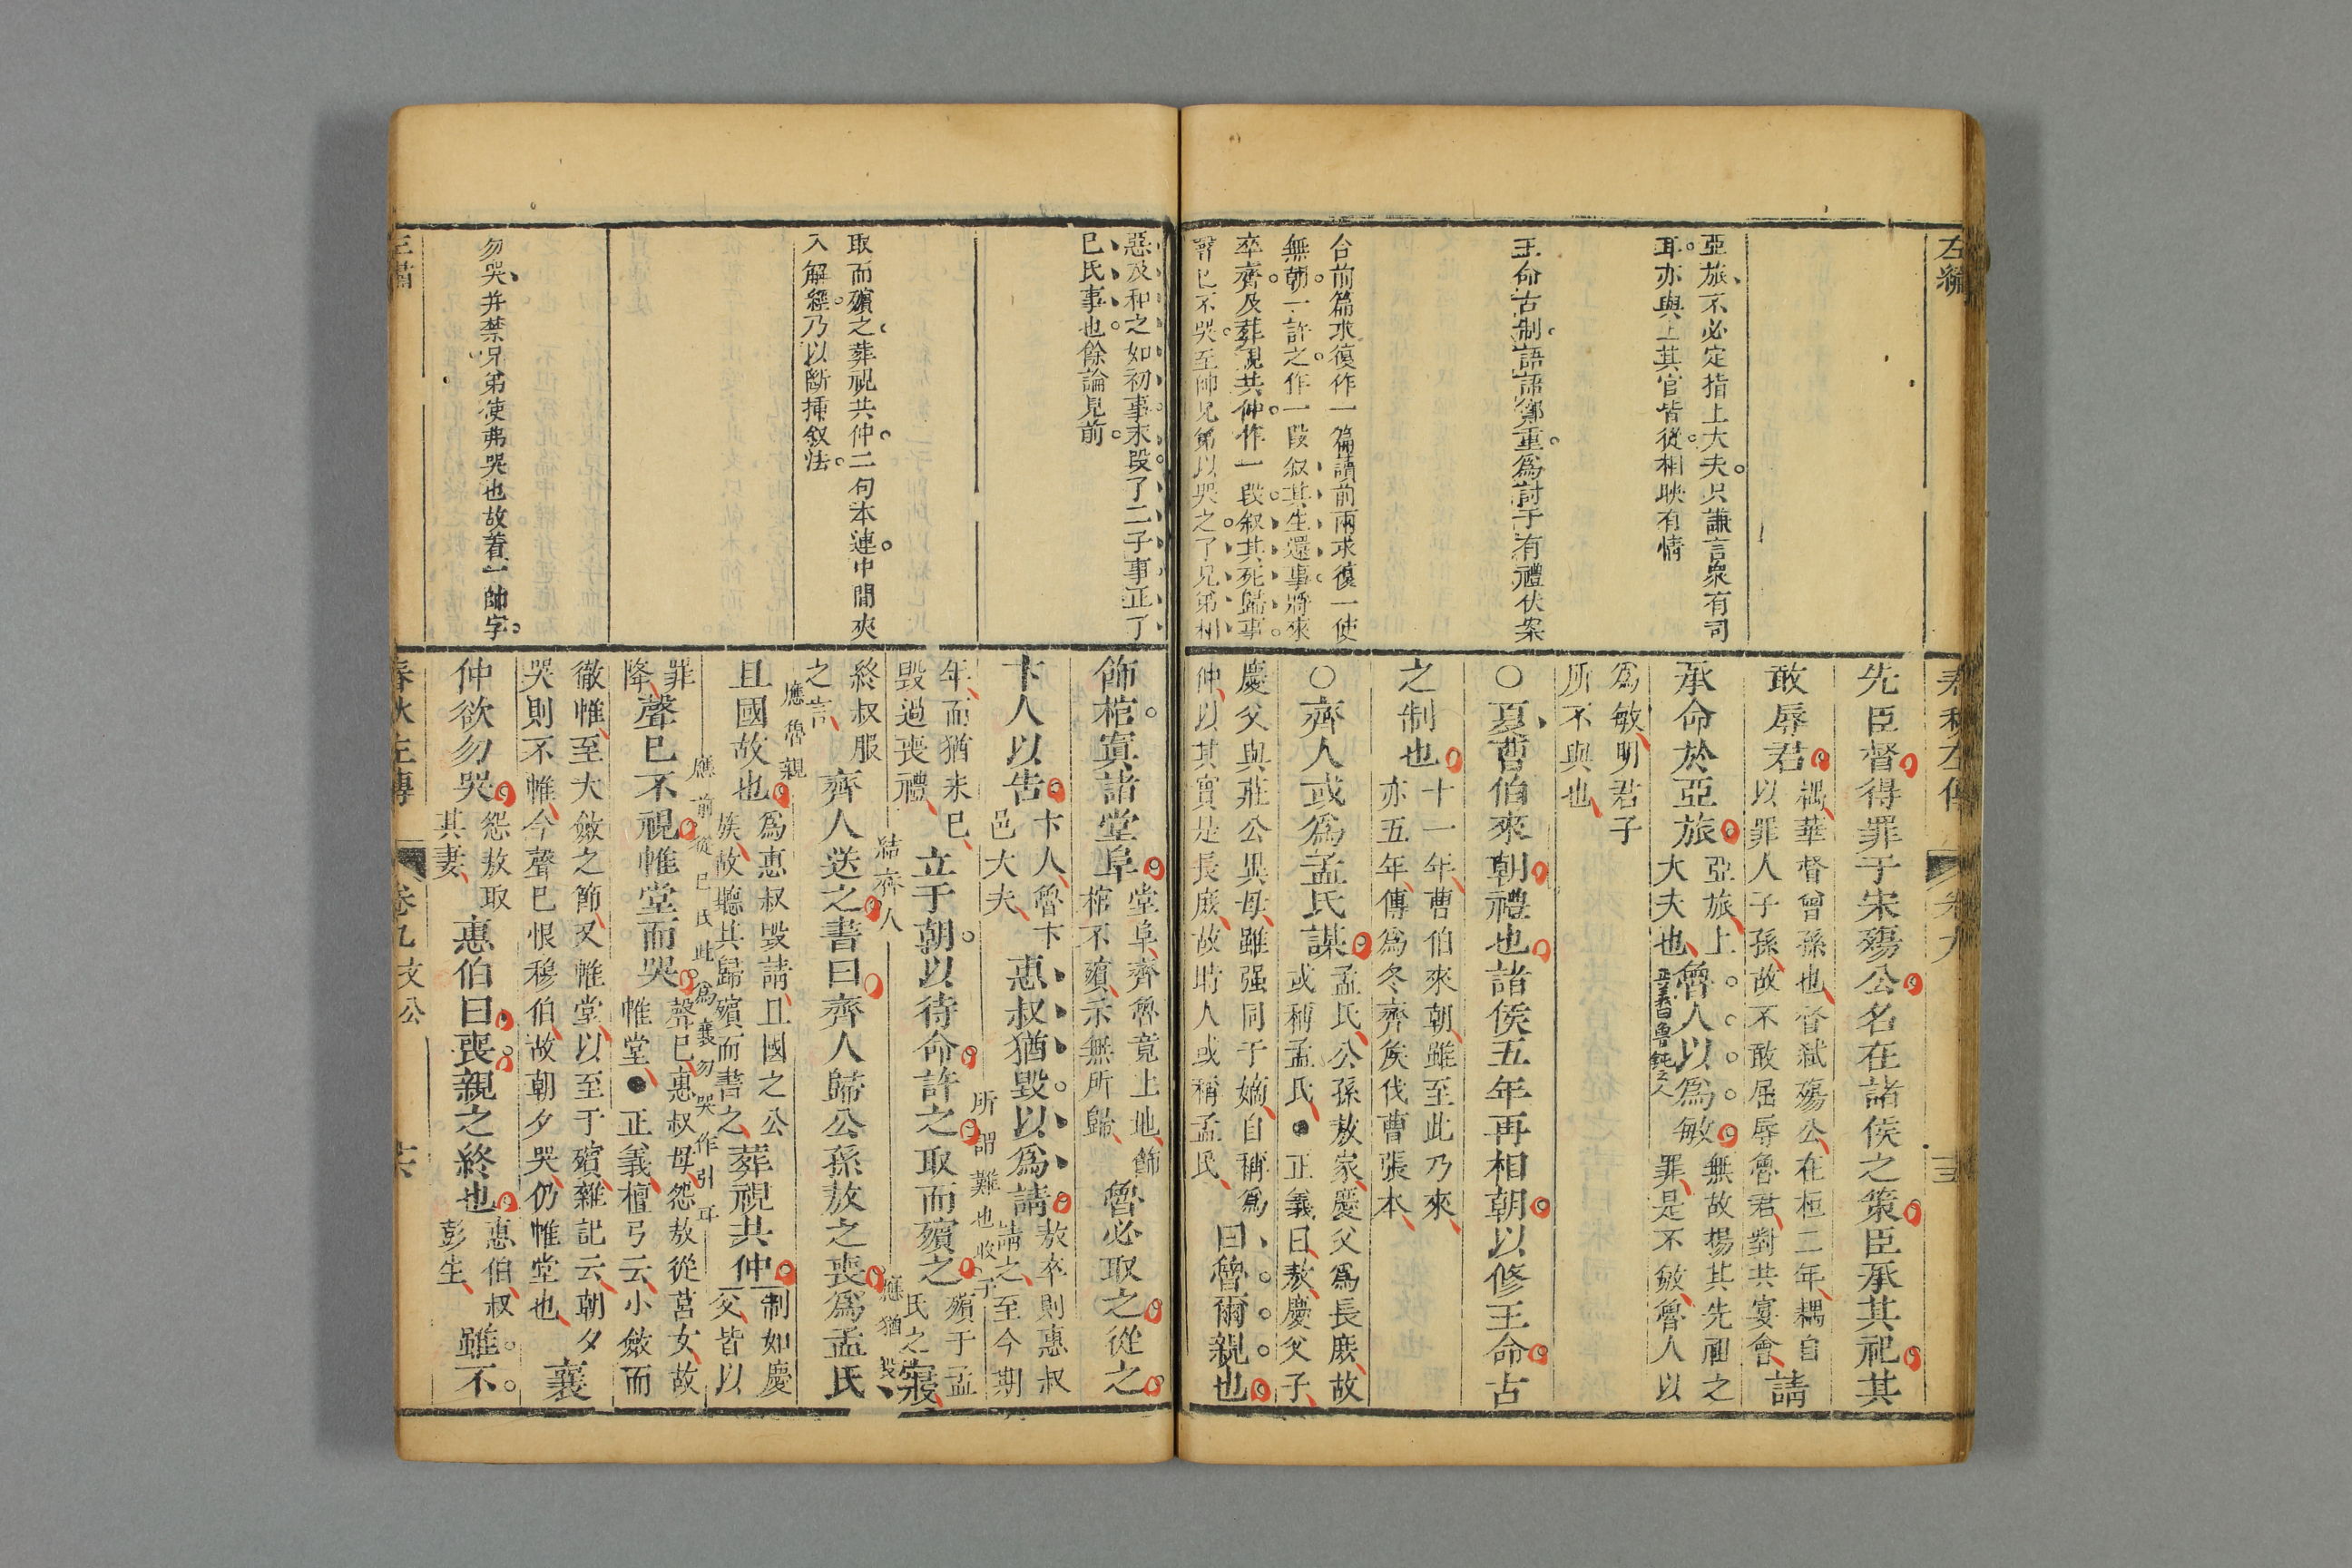 左繡
春秋左傳
卷九
亞旅不必定指上大夫只謙言衆有司
耳亦與上其官皆從相映有情
王命古制語語鄭重爲討于有禮伏案
合前篇求復作一篇讀前兩求復一使
無朝一許之作一段叙其生還事將來
卒齊及葬視共仲作一段叙其死歸事
聲已不哭至帥兄弟以哭之了兄弟相
先臣督得罪于宋殤公名在諸侯之策臣承其祀其
敢辱君
耦華督曾孫也督弑殤公在桓二年耦自
以罪人子孫故不敢屈辱魯君對共宴會
請
承命於亞旅
亞旅上
大夫也
魯人以爲敏
無故揚其先祖之
罪是不敏魯人以
正義曰魯鈍之人
爲敏明君子
所不與也
○夏曹伯來朝禮也諸侯五年再相朝以修王命古
之制也
十一年曹伯來朝雖至此乃來
亦五年傳爲冬齊侯伐曹張本
○齊人或爲孟氏謀
孟氏公孫敖家慶父爲長庶故
或稱孟氏●正義曰敖慶父子
慶父與莊公異母雖强同于嫡自稱爲
仲以其實是長庶故時人或稱孟氏
曰魯爾親也
惡及和之如初事末段了二子事正了
已氏事也餘論見前
取而殯之葬視共仲二句本連中間夾
入解經乃以斷揷叙法
勿哭并禁兄弟使弗哭也故着一帥字
飾棺寘諸堂阜
堂阜齊魯竟上地飾
棺不殯示無所歸
魯必取之從之
卞人以告
卞人魯卞
邑大夫
惠叔猶毀以爲請
敖卒則惠叔
請之至今期
所謂難也收子
年而猶未已
毀過喪禮
立于朝以待命許之取而殯之
殯于孟
氏之寢
結齊人
應猶毀
終叔服
之言
齊人送之書曰齊人歸公孫敖之喪爲孟氏
應魯親
且國故也
爲惠叔毀請且國之公
族故聽其歸殯而書之
葬視共仲
制如慶
父皆以
應前從已氏此爲襄勿哭作引耳
罪
降
聲已不視帷堂而哭
聲已惠叔母怨敖從莒女故
帷堂●正義檀弓云小斂而
徹帷至大斂之節又帷堂以至于殯雜記云朝夕
哭則不帷今聲已恨穆伯故朝夕哭仍帷堂也
襄
仲欲勿哭
怨敖取
其妻
惠伯曰喪親之終也
惠伯叔
彭生
雖不
春秋左傳
卷九文公